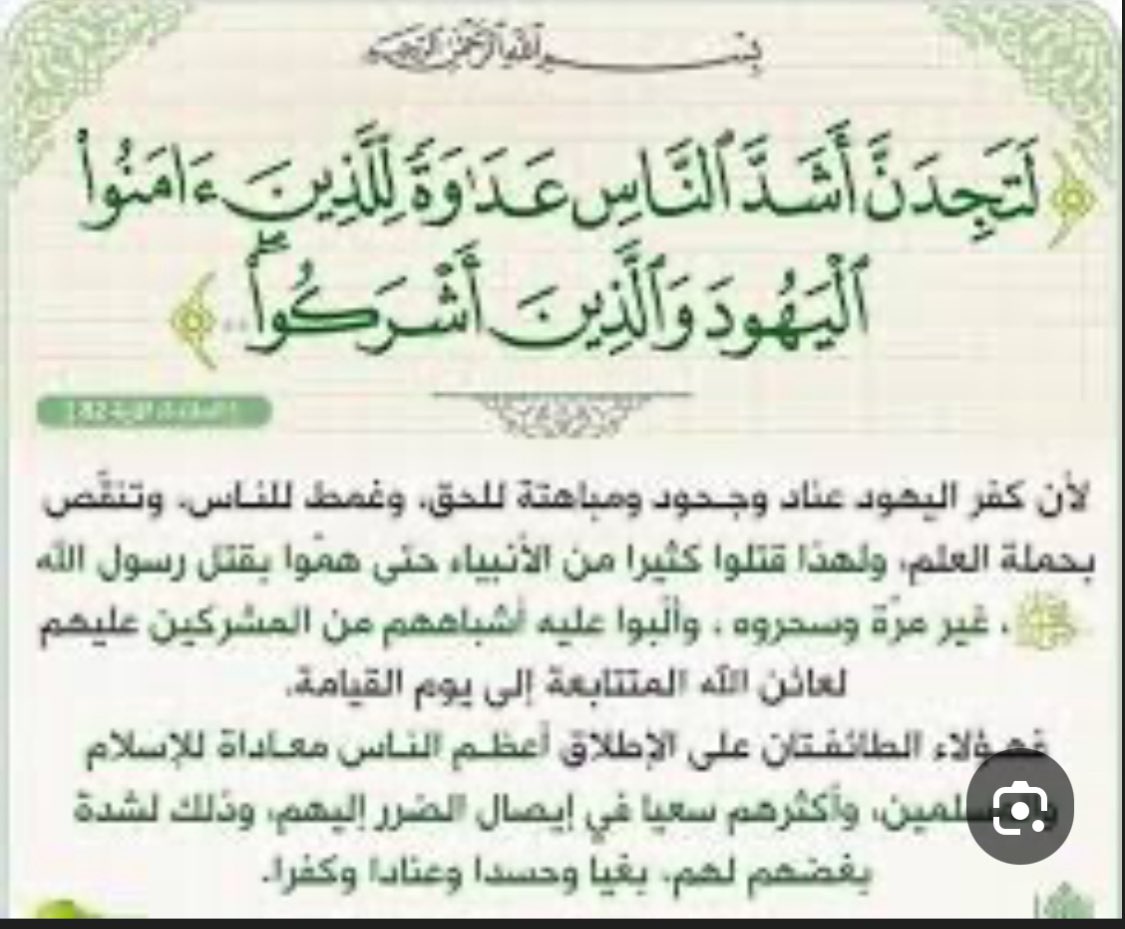 بسم الله الرحمن الرحيم
﴿ لَتَجِدَنَّ أَشَدَّ ٱلنَّاسِ عَدَٰوَةً لِّلَّذِينَ ءَامَنُوا۟
ٱلْيَهُودَ وَٱلَّذِينَ أَشْرَكُوا۟ۖ .. ﴾
لأن كفر اليهود عناد وجحود ومباهتة للحق، وغمط للناس، وتنقّص
بحملة العلم، ولهذا قتلوا كثيرا من الأنبياء حتى همّوا بقتل رسول الله
ﷺ ، غير مرّة وسحروه ، وألّبوا عليه أشباههم من المشركين عليهم
لعائن الله المتتابعة إلى يوم القيامة.
فهؤلاء الطائفتان على الإطلاق أعظم الناس معاداة للإسلام
والمسلمين، وأكثرهم سعيا في إيصال الضرر إليهم، وذلك لشدة
بغضهم لهم، بغيا وحسدا وعنادا وكفرا.